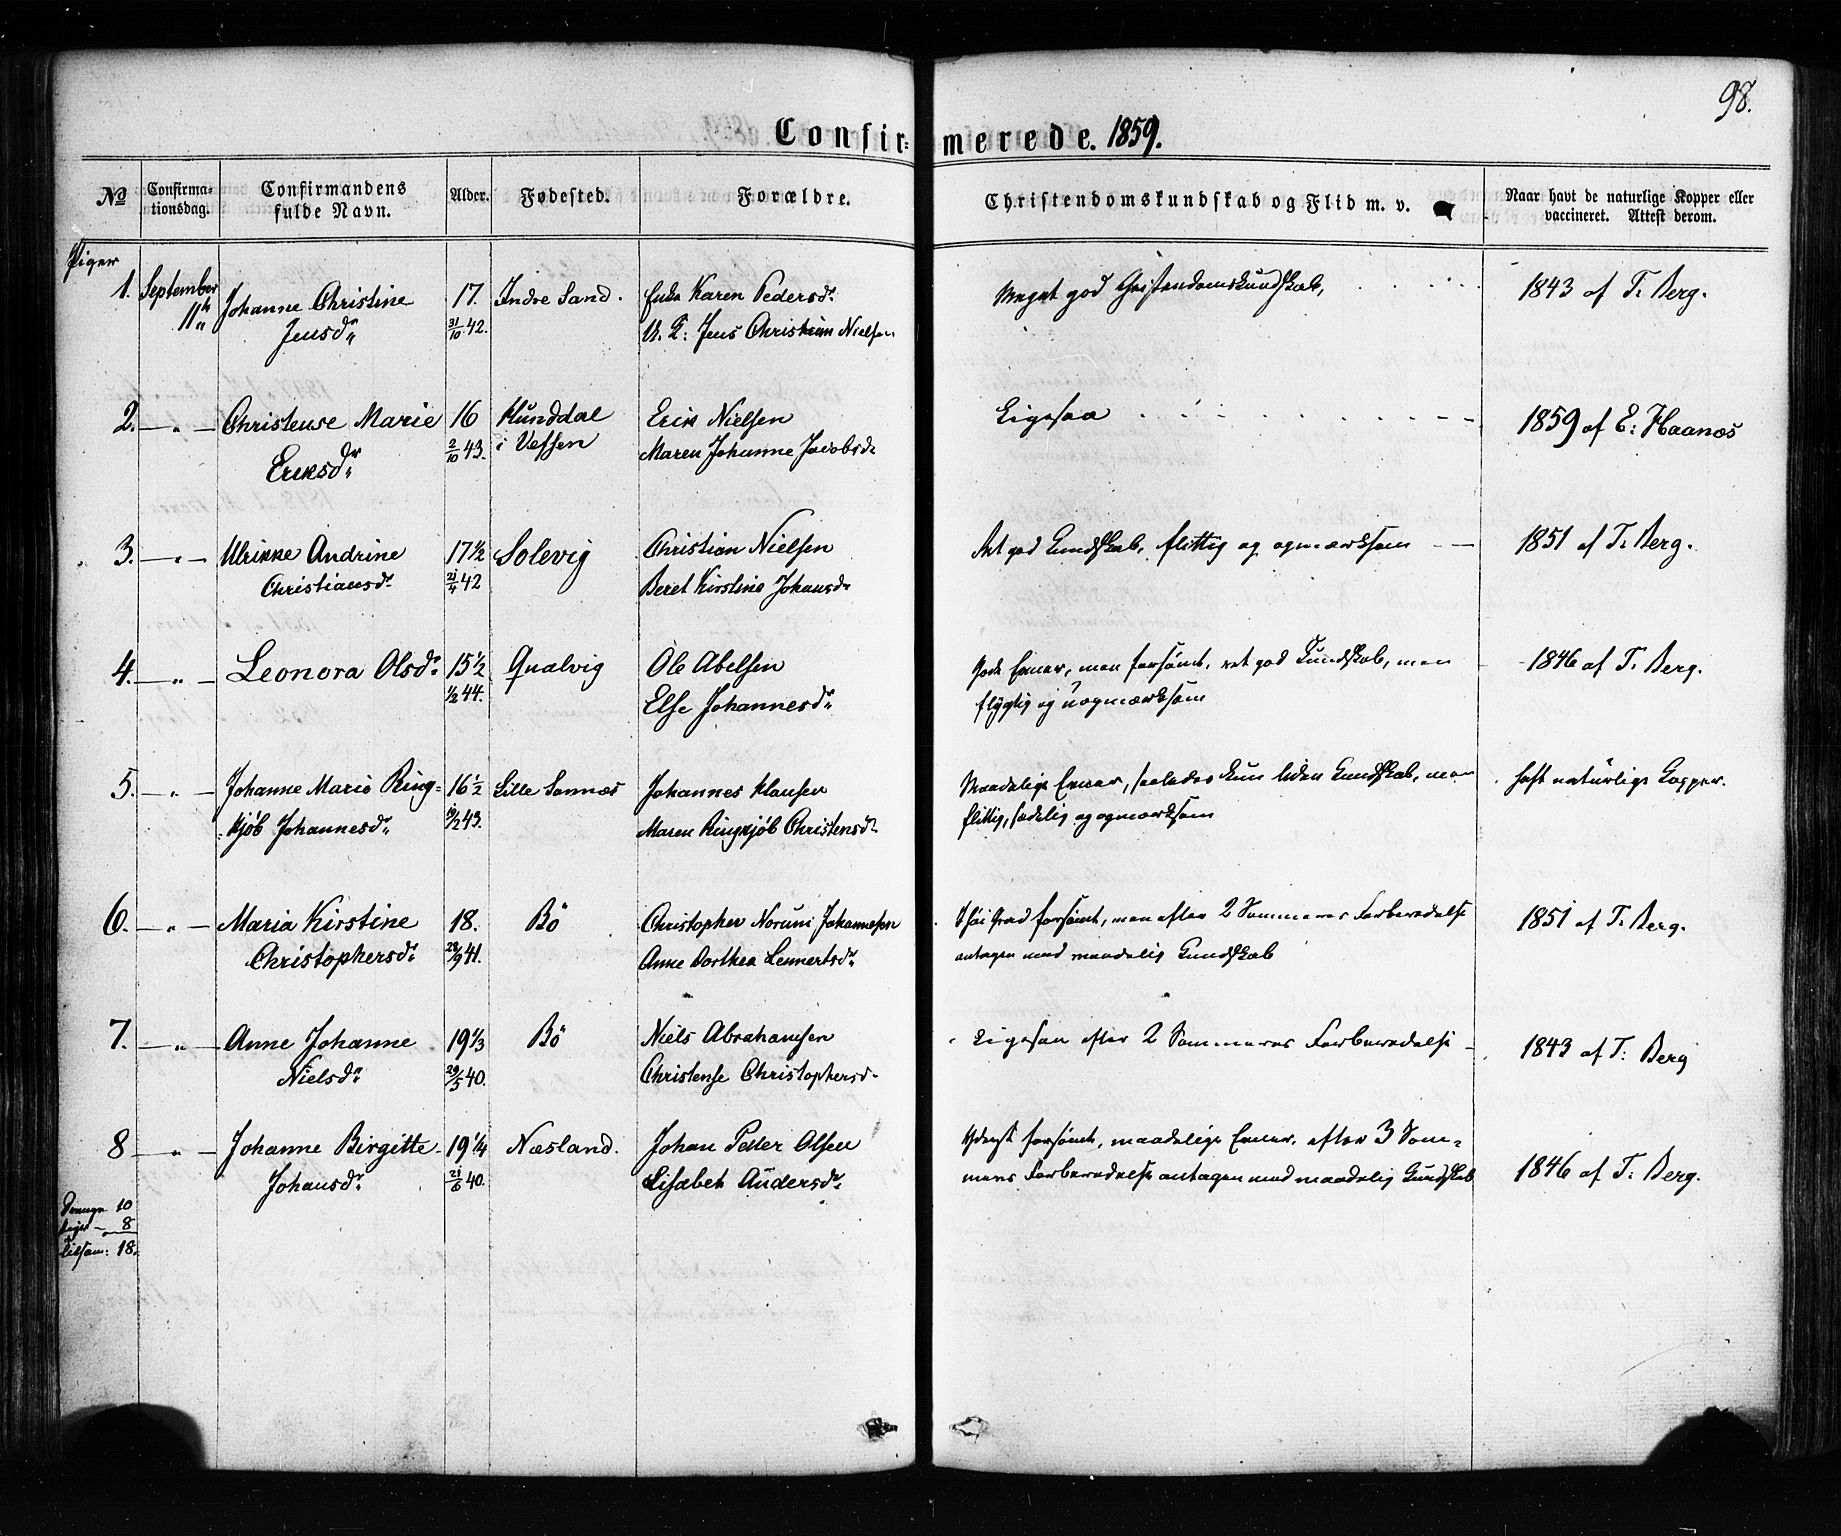 98.
Confir= merede. 1859.
No Confirma-tionsdag. Confirmandens fulde Navn. Alder. Fødested. Forældre. Christendomskundskab og Flid m. v. Naar havt de naturlige Kopper eller vaccineret. Attest derom.
Piger
1. September Johanne Christine 17. Indre Sand. Enke Karen Pedersd. Meget god Christendomskundskab, 1843 af T. Berg.
11te Jensdr 31/10 42. U. E: Jens Christian Nielsen
2. — " — Christense Marie 16 Kunddal Erik Nielsen Ligesaa 1859 af E: Haanæs
Eriksdr 2/10 43. i Vefsen Maren Johanne Jacobsd.
3. — " — Ulrikke Andrine 17 1/2 Solevig Christian Nielsen Ret god Kundskab, flittig og opmærksom — — 1851 af T. Berg.
Christiansdr 21/4 42 Beret Kirstine Johansdr
4. — " — Leonora Olsdr 15 1/2 Qvalvig Ole Abelsen Gode Evner, men forsømt, ret god Kundskab, men 1846 af T. Berg.
1/2 44. Else Johannesdr flygtig og uopmærksom
5. — " — Johanne Marie Ring= 16 1/2 Lille Sannæs Johannes Klausen Maadelige Evner, saaledes kun liden Kundskab, men haft naturlige Kopper.
=kjöb Johannesdr 19/2 43. Maren Ringkjöb Christensdr flittig, sædelig og opmærksom
6. — " — Maria Kirstine 18. Bö Christopher Norum Johannesen I høi Grad forsømt, men efter 2 Sommeres Forberedelse 1851 af T. Berg.
Christophersdr 28/9 41. Anne Dorthea Lennertsdr antagen med maadelig Kundskab
7. — " — Anne Johanne 19 1/3 Bö Niels Abrahamsen Ligesaa efter 2 Sommeres Forberedelse — 1843 af T: Berg
Nielsdr 29/5 40. Christense Christophersd.
8 — " — Johanne Birgitte 19 1/4 Næsland. Johan Petter Olsen Yderst forsømt, maadelige Evner, efter 3 Som=
Johansdr 21/6 40. Lisabet Andersdr meres Forberedelse antagen med maadelig Kundskab 1846 af T: Berg.
Drenge 10
Piger — 8
tilsam: 18.